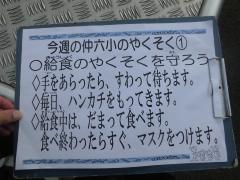 今週の仲六小のやくそく①
○給食のやくそくを守ろう
◇手をあらったら、すわって待ちます。
◇毎日、ハンカチをもってきます。
◇給食中は、だまって食べます。
食べ終わったらすぐ、マスクをつけます。